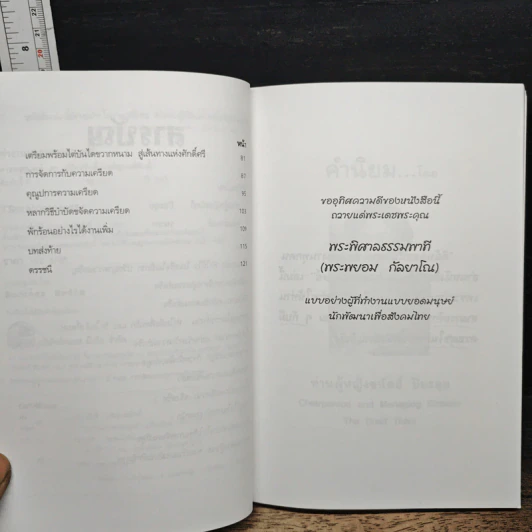 หน้า
เตรียมพร้อมไต่บันไดขวากหนาม สู่เส้นทางแห่งศักดิ์ศรี 81
การจัดการกับความเครียด 91
คุณูปการความเครียด 95
หลากวิธีบำบัดขจัดความเครียด 104
พักร้อนอย่างไรได้งานเพิ่ม 109
บทส่งท้าย 115
ดรรชนี 121
ขออุทิศความดีของหนังสือนี้
ถวายแด่พระเดชพระคุณ
พระพิศาลธรรมพาที
(พระพยอม กัลยาโณ)
แบบอย่างผู้ที่ทำงานแบบยอดมนุษย์
นักพัฒนาเพื่อสังคมไทย